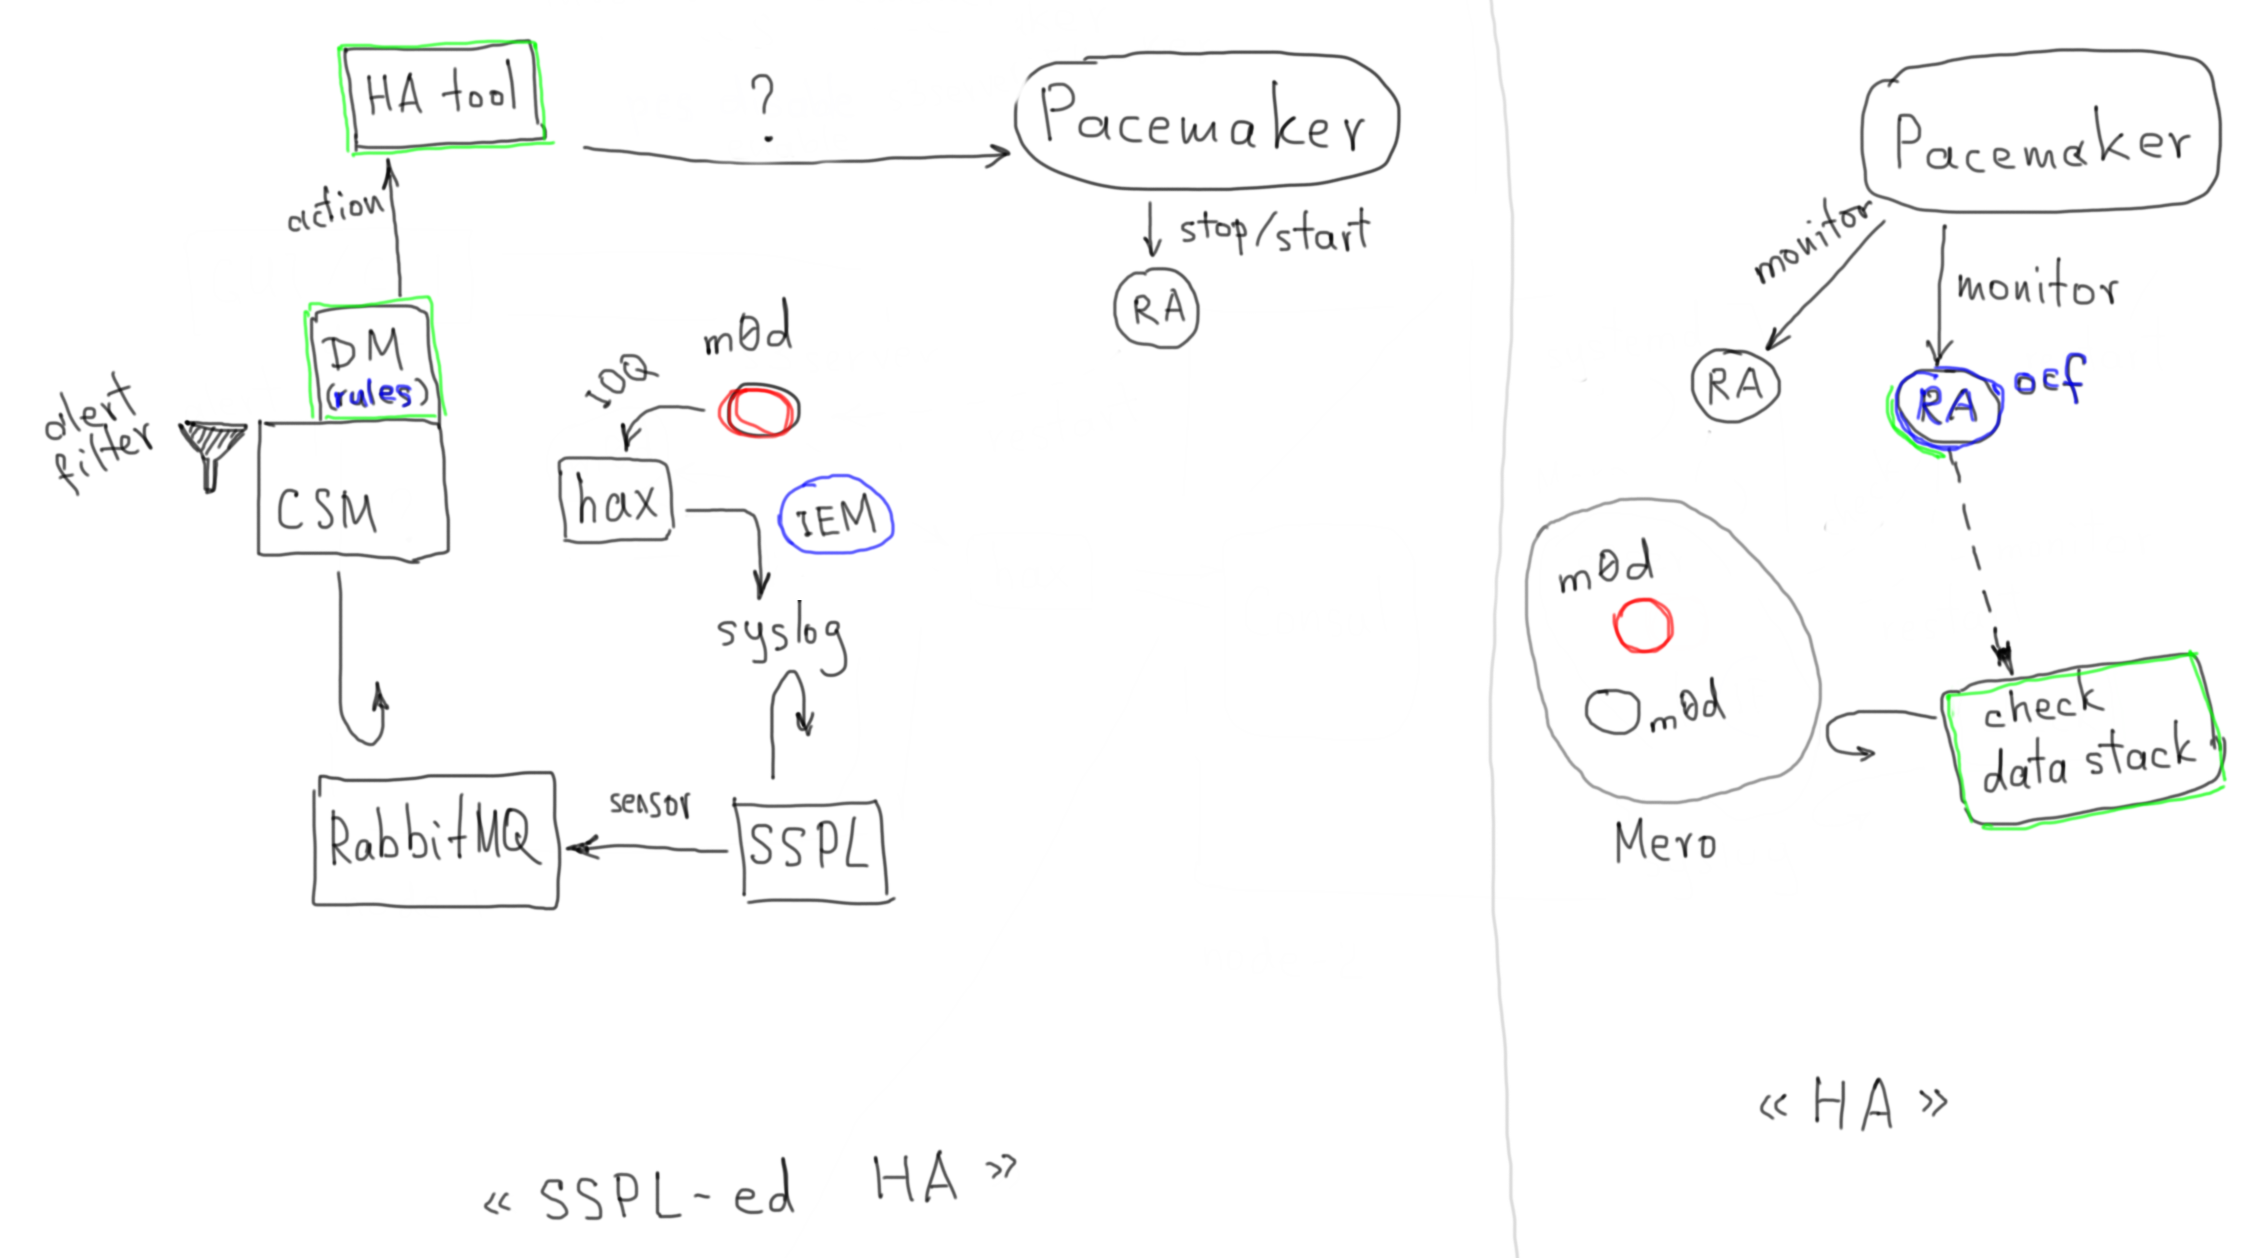 HA tool
?
Pacemaker
action
stop/start
RA
DM
(rules)
alert
filter
CSM
m0d
IOQ
hax
IEM
syslog
RabbitMQ
sensor
SSPL
« SSPL-ed HA »
Pacemaker
monitor
monitor
RA
RA
ocf
m0d
m0d
Mero
check
data stack
« HA »